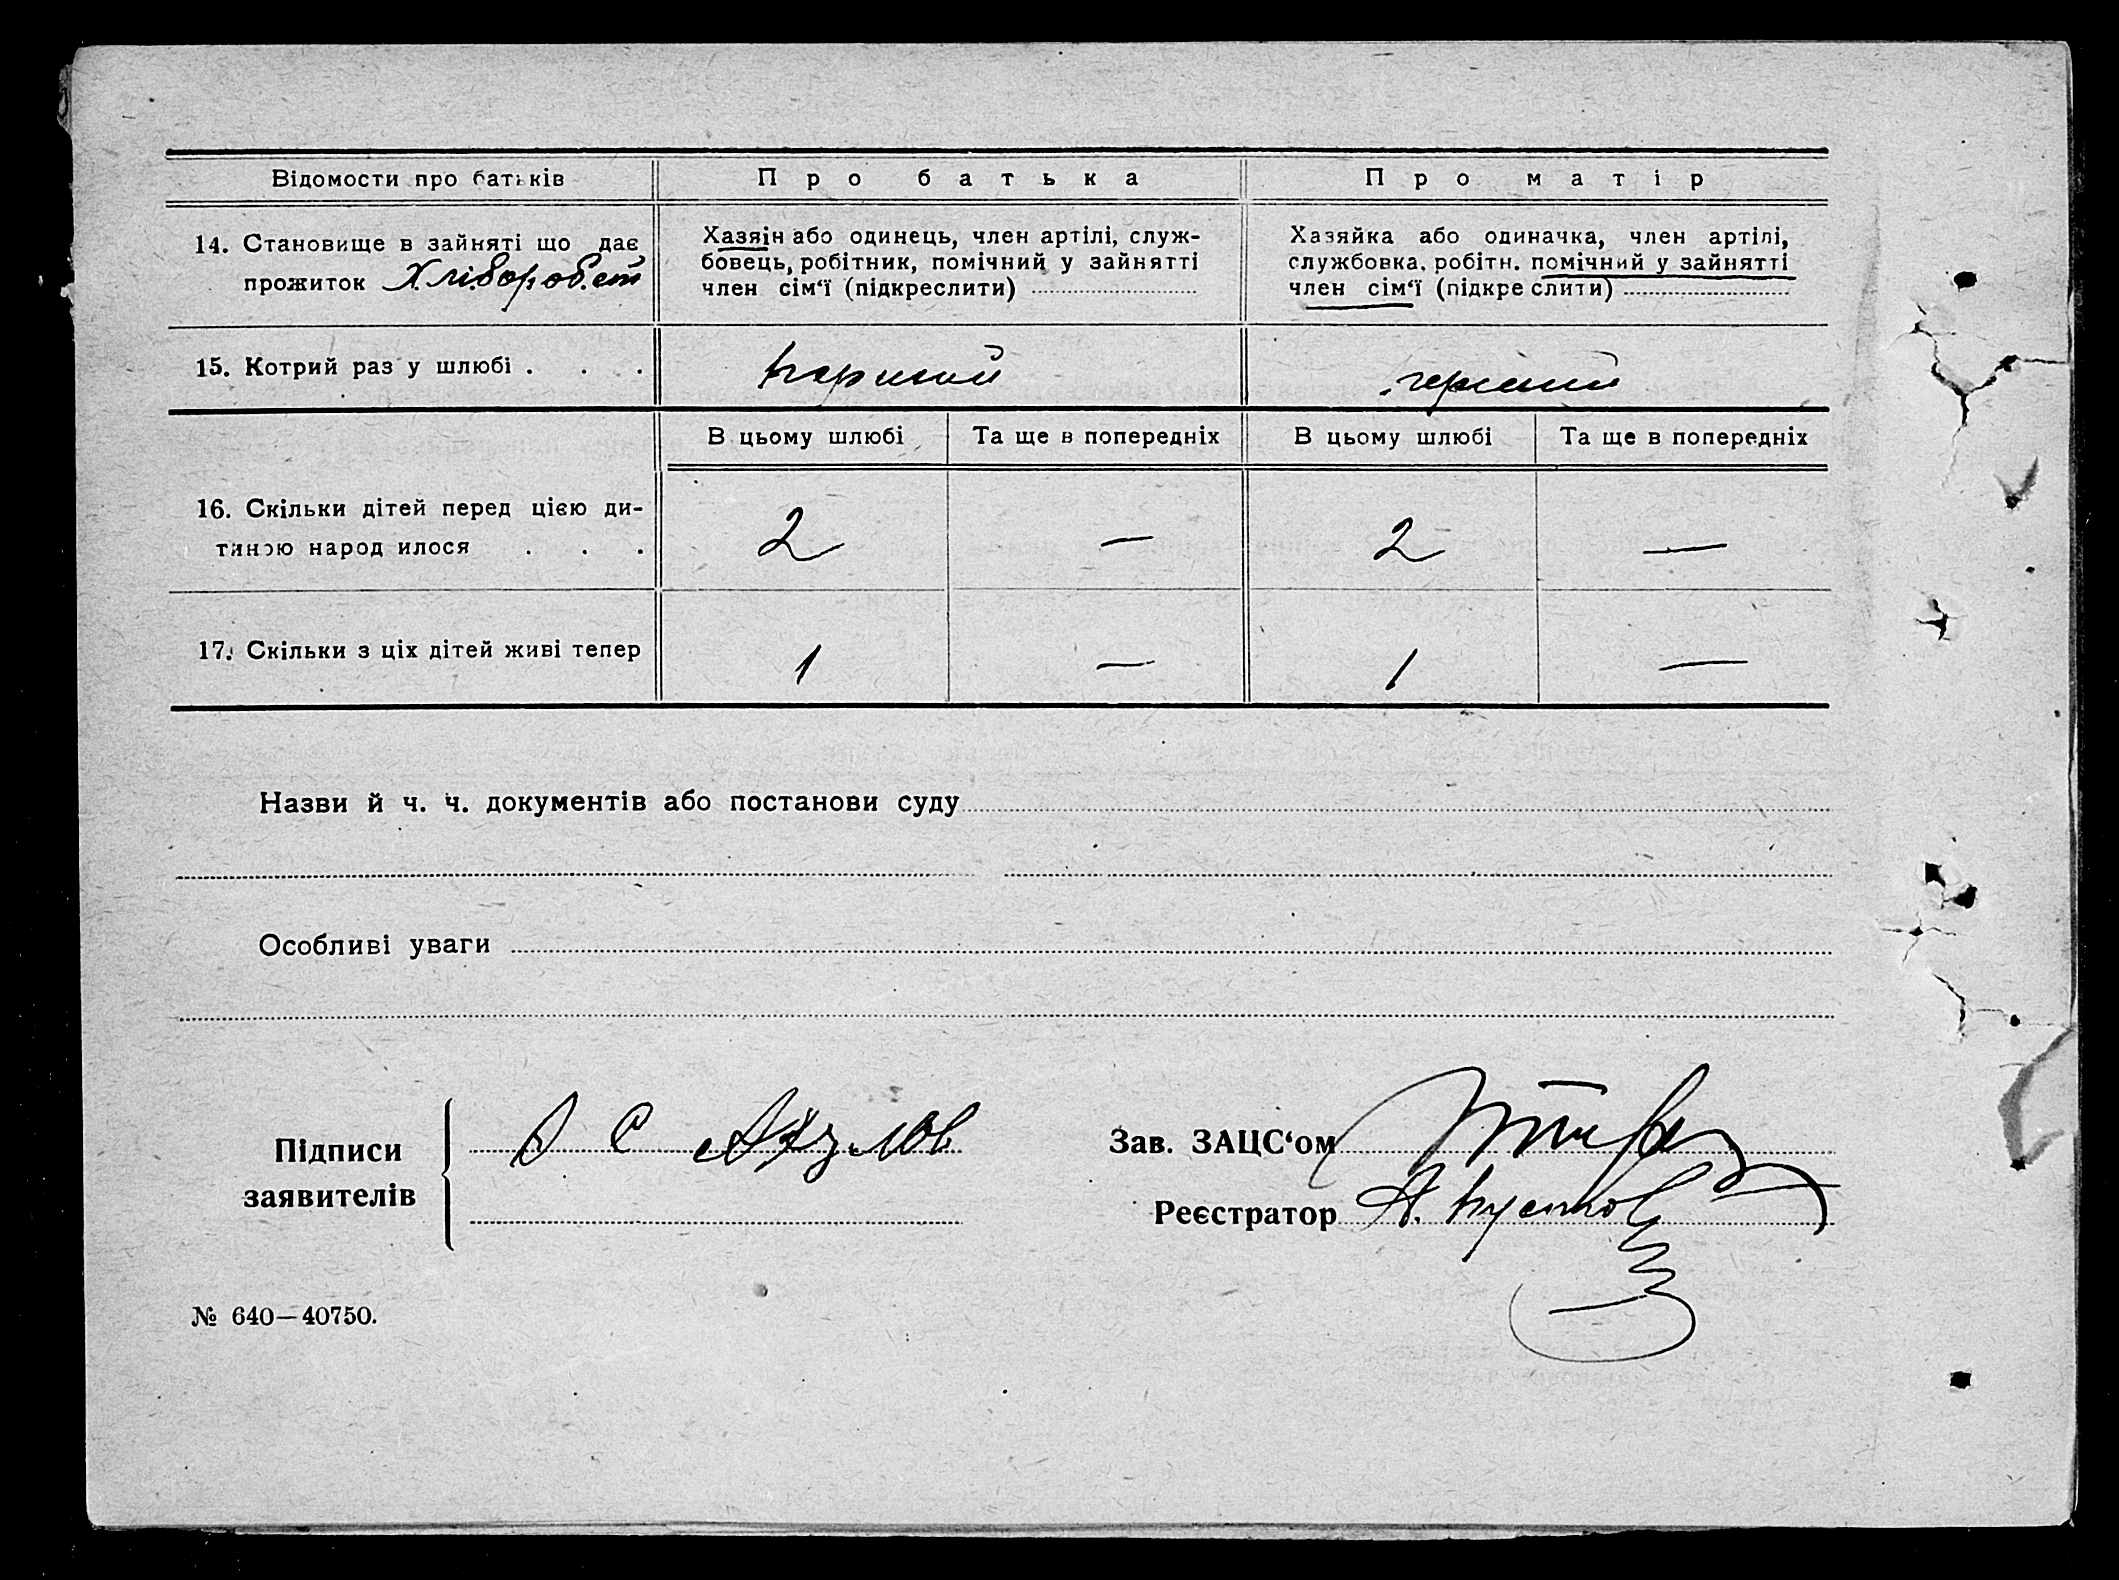 Відомости про батьків
Про батька
Про матір
14. Становище в зайняті що дає
прожиток Хлібороб.ств
Хазяїн або одинець, член артілі, служ-
бовець, робітник, помічний у зайнятті
член сім‘ї (підкреслити)
Хазяйка або одиначка, член артілі,
службовка, робітн. помічний у зайнятті
член сім‘ї (підкреслити)
15. Котрий раз у шлюбі . . .
перший
перший
В цьому шлюбі
Та ще в попередніх
В цьому шлюбі
Та ще в попередніх
16. Скільки дітей перед цією ди-
тиною народилося . . .
2 — 2 —
17. Скільки з ціх дітей живі тепер
1 — 1 —
Назви й ч. ч. документів або постанови суду
Особливі уваги
Підписи
заявителів
Зав. ЗАЦС‘ом
Реєстратор А.
№ 640—40750.